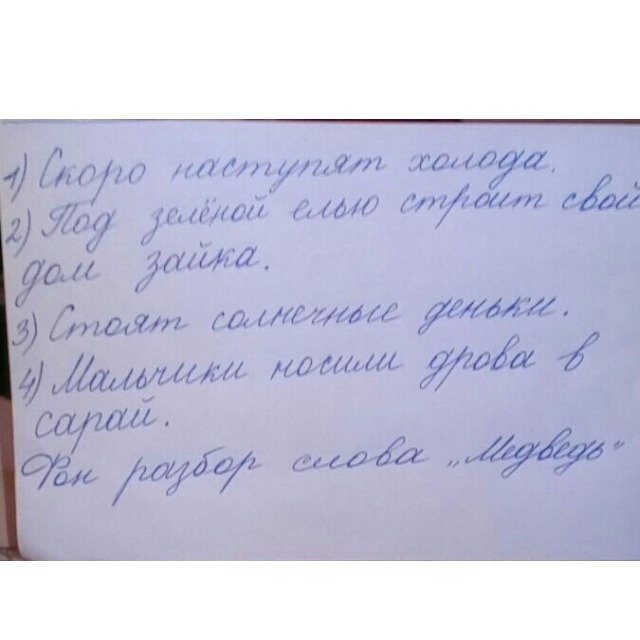 1) Скоро наступят холода.
2) Под зелёной елью строит свой
дом зайка.
3) Стоят солнечные деньки.
4) Мальчики носили дрова в
сарай.
Фон разбор слова „Медведь“